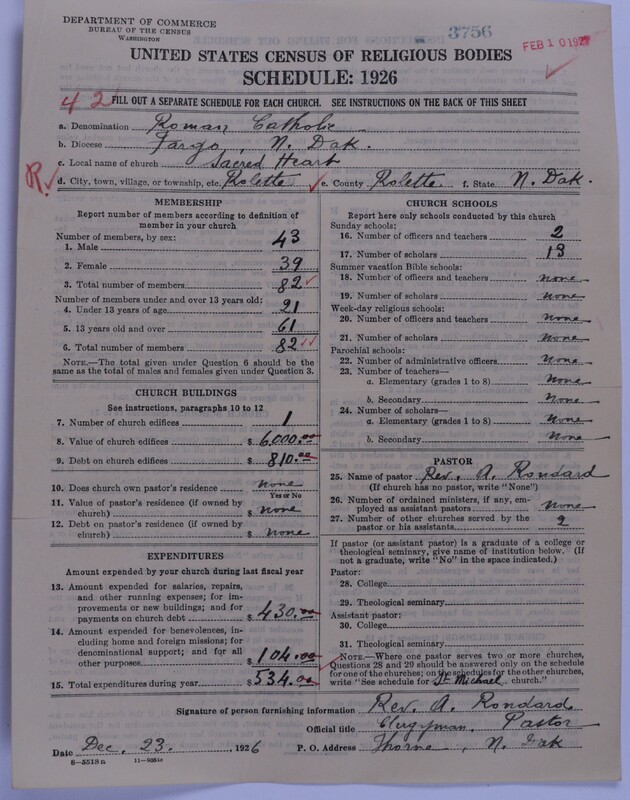 DEPARTMENT OF COMMERCE
BUREAU OF THE CENSUS
WASHINGTON
3756
FEB 10 1927
UNITED STATES CENSUS OF RELIGIOUS BODIES
SCHEDULE: 1926
42
FILL OUT A SEPARATE SCHEDULE FOR EACH CHURCH. SEE INSTRUCTIONS ON THE BACK OF THIS SHEET
a. Denomination Roman Catholic
b. Diocese Fargo, N. Dak.
c. Local name of church Sacred Heart
R. d. City, town, village, or township, etc. Rolette e. County Rolette f. State N. Dak.
MEMBERSHIP
Report number of members according to definition of
member in your church
Number of members, by sex:
1. Male 43
2. Female 39
3. Total number of members 82
Number of members under and over 13 years old:
4. Under 13 years of age 21
5. 13 years old and over 61
6. Total number of members 82
NOTE.—The total given under Question 6 should be the
same as the total of males and females given under Question 3.
CHURCH BUILDINGS
See instructions, paragraphs 10 to 12
7. Number of church edifices 1
8. Value of church edifices $ 6,000.00
9. Debt on church edifices $ 810.00
10. Does church own pastor's residence? none
Yes or No
11. Value of pastor's residence (if owned by
church) $ none
12. Debt on pastor's residence (if owned by
church) $ none
EXPENDITURES
Amount expended by your church during last fiscal year
13. Amount expended for salaries, repairs,
and other running expenses; for im-
provements or new buildings; and for
payments on church debt $ 430.00
14. Amount expended for benevolences, in-
cluding home and foreign missions; for
denominational support; and for all
other purposes $ 104.00
15. Total expenditures during year $ 534.00
CHURCH SCHOOLS
Report here only schools conducted by this church
Sunday schools:
16. Number of officers and teachers 2
17. Number of scholars 13
Summer vacation Bible schools:
18. Number of officers and teachers none
19. Number of scholars none
Week-day religious schools:
20. Number of officers and teachers none
21. Number of scholars none
Parochial schools:
22. Number of administrative officers none
23. Number of teachers—
a. Elementary (grades 1 to 8) none
b. Secondary none
24. Number of scholars—
a. Elementary (grades 1 to 8) none
b. Secondary none
PASTOR
25. Name of pastor Rev. A. Rondard
(If church has no pastor, write "None")
26. Number of ordained ministers, if any, em-
ployed as assistant pastors none
27. Number of other churches served by the
pastor or his assistants 2
If pastor (or assistant pastor) is a graduate of a college or
theological seminary, give name of institution below. (If
not a graduate, write "No" in the space indicated.)
Pastor:
28. College
29. Theological seminary
Assistant pastor:
30. College
31. Theological seminary
NOTE.—Where one pastor serves two or more churches,
Questions 28 and 29 should be answered only on the schedule
for one of the churches; on the schedules for the other churches,
write "See schedule for St Michael church."
Signature of person furnishing information Rev. A. Rondard
Official title Clergyman, Pastor
Date Dec. 23. 1926 P. O. Address Thorne, N. Dak
8—5518 a 11—9351